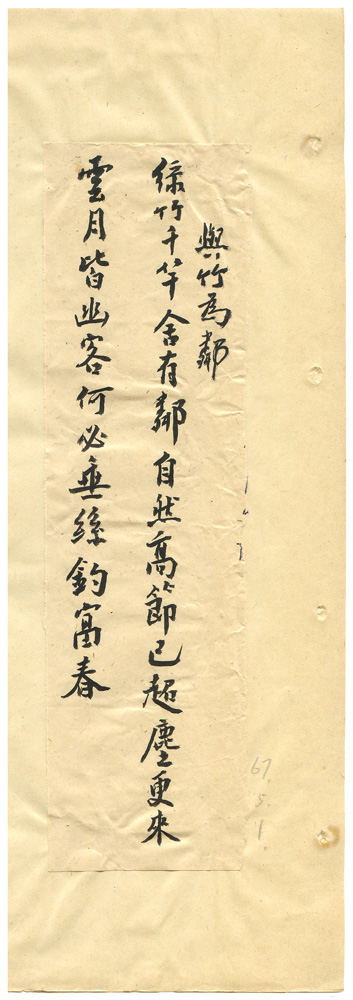 與竹為鄰
綠竹千竿舍有鄰自然高節已超塵更來
雲月皆幽客何必垂絲釣富春
67.5.1.